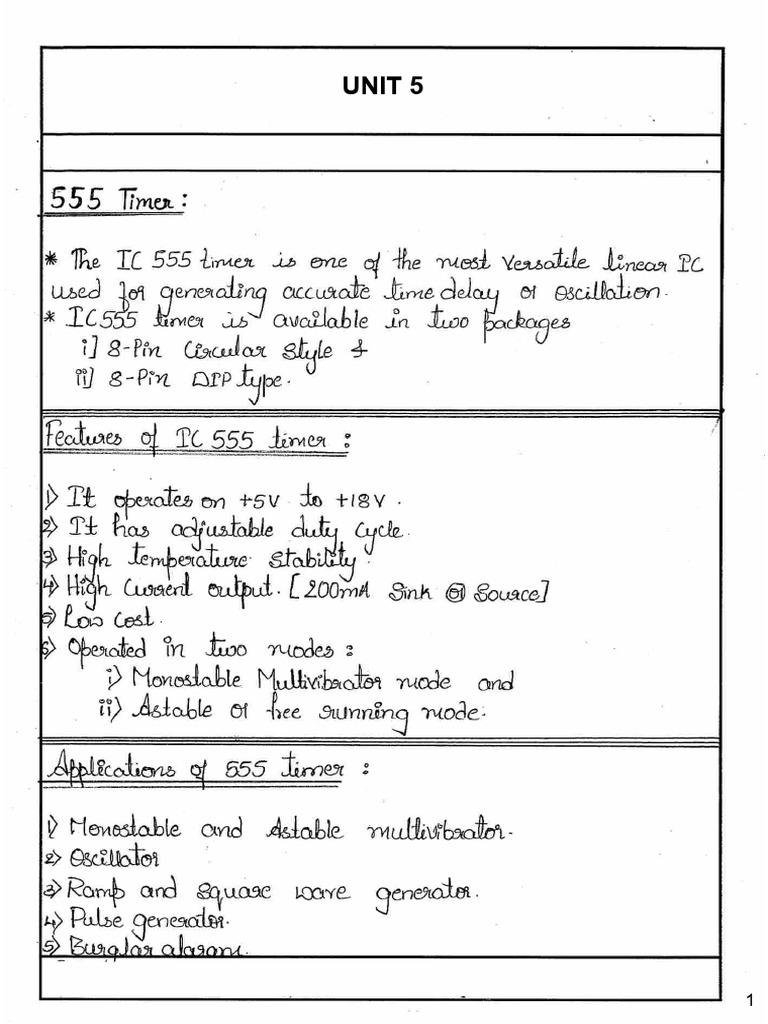 UNIT 5
555 Timer :
* The IC 555 timer is one of the most versatile linear IC
used for generating accurate time delay or oscillation.
* IC555 timer is available in two packages
i] 8-Pin Circular style &
ii] 8-Pin DIP type.
Features of IC 555 timer :
1) It operates on +5V to +18V.
2) It has adjustable duty cycle.
3) High temperature stability.
4) High current output. [200mA Sink or Source]
5) Low cost.
6) Operated in two modes :
i) Monostable Multivibrator mode and
ii) Astable or free running mode.
Applications of 555 timer :
1) Monostable and Astable multivibrator.
2) Oscillator
3) Ramp and square wave generator.
4) Pulse generator.
5) Burglar alaram.
1